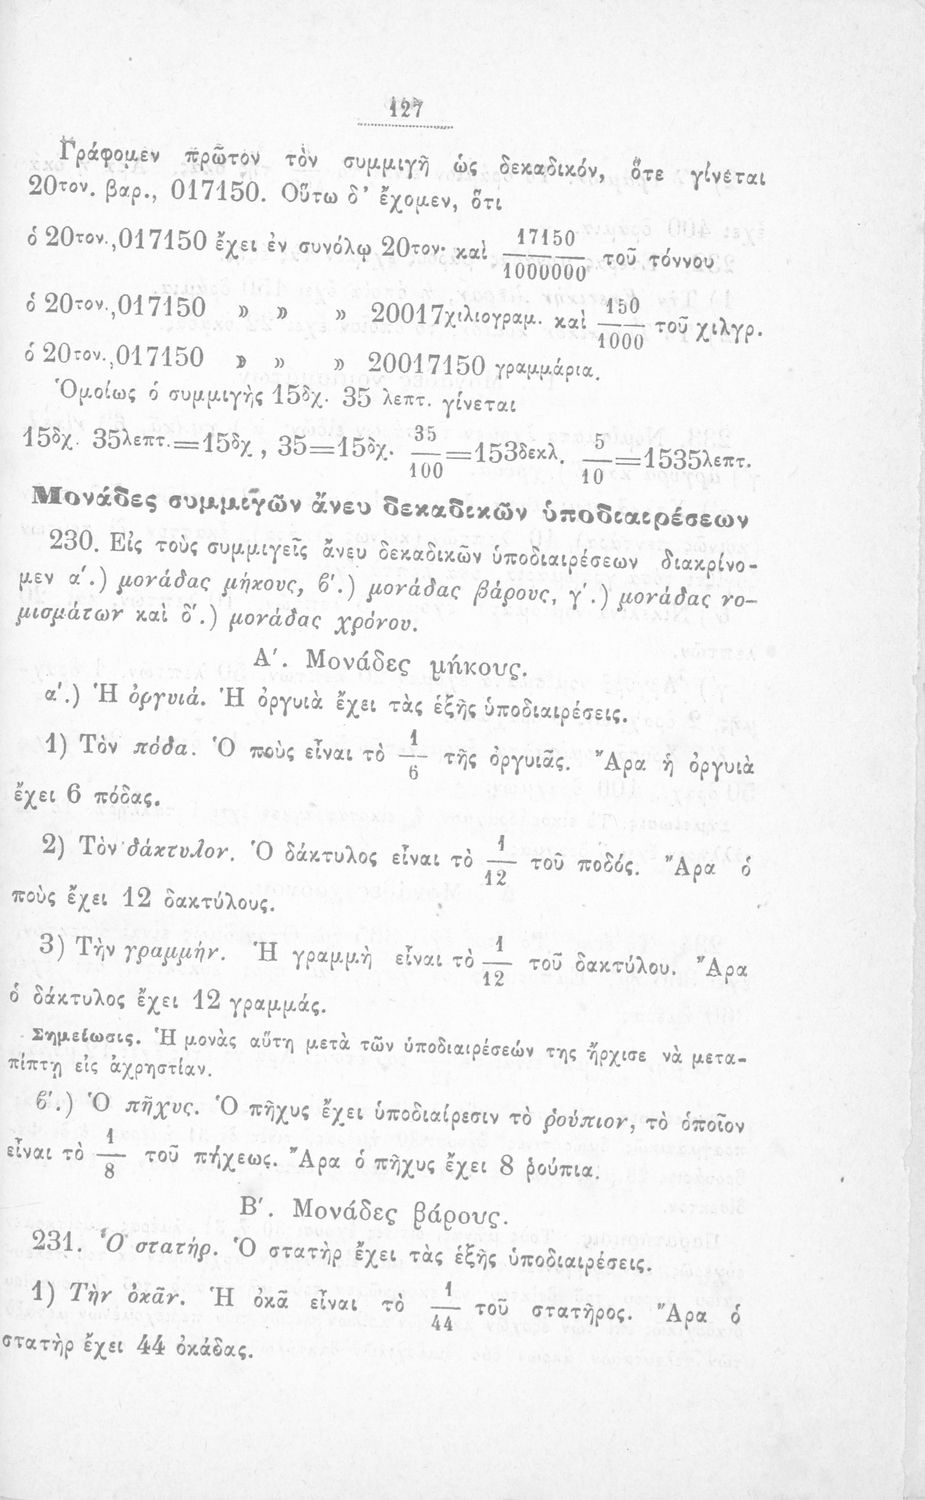 127
Γράφομεν πρῶτον τὸν συμμιγῆ ὡς δεκαδικόν, ὅτε γίνεται
20τον. βαρ., 017150. Οὕτω δ' ἔχομεν, ὅτι
ὁ 20τον.,017150 ἔχει ἐν συνόλῳ 20τον· καὶ 17150/1000000 τοῦ τόννου
ὁ 20τον.,017150 » » » 20017χιλιογραμ. καὶ 150/1000 τοῦ χιλγρ.
ὁ 20τον.,017150 » » » 20017150 γραμμάρια.
Ὁμοίως ὁ συμμιγὴς 15δχ. 35 λεπτ. γίνεται
15δχ. 35λεπτ.=15δχ, 35=15δχ. 35/100=153δεκλ. 5/10=1535λεπτ.
Μονάδες συμμιγῶν ἄνευ δεκαδικῶν ὑποδιαιρέσεων
230. Εἰς τοὺς συμμιγεῖς ἄνευ δεκαδικῶν ὑποδιαιρέσεων διακρίνο-
μεν α'.) μονάδας μήκους, β'.) μονάδας βάρους, γ'.) μονάδας νο-
μισμάτων καὶ δ'.) μονάδας χρόνου.
Α'. Μονάδες μήκους.
α'.) Ἡ ὀργυιά. Ἡ ὀργυιὰ ἔχει τὰς ἑξῆς ὑποδιαιρέσεις.
1) Τὸν πόδα. Ὁ ποὺς εἶναι τὸ 1/6 τῆς ὀργυιᾶς. Ἄρα ἡ ὀργυιὰ
ἔχει 6 πόδας.
2) Τὸν δάκτυλον. Ὁ δάκτυλος εἶναι τὸ 1/12 τοῦ ποδός. Ἄρα ὁ
ποὺς ἔχει 12 δακτύλους.
3) Τὴν γραμμήν. Ἡ γραμμὴ εἶναι τὸ 1/12 τοῦ δακτύλου. Ἄρα
ὁ δάκτυλος ἔχει 12 γραμμάς.
Σημείωσις. Ἡ μονὰς αὕτη μετὰ τῶν ὑποδιαιρέσεών της ἤρχισε νὰ μετα-
πίπτῃ εἰς ἀχρηστίαν.
β'.) Ὁ πῆχυς. Ὁ πῆχυς ἔχει ὑποδιαίρεσιν τὸ ῥούπιον, τὸ ὁποῖον
εἶναι τὸ 1/8 τοῦ πήχεως. Ἄρα ὁ πῆχυς ἔχει 8 ῥούπια.
Β'. Μονάδες βάρους.
231. Ὁ στατήρ. Ὁ στατὴρ ἔχει τὰς ἑξῆς ὑποδιαιρέσεις.
1) Τὴν ὀκᾶν. Ἡ ὀκᾶ εἶναι τὸ 1/44 τοῦ στατῆρος. Ἄρα ὁ
στατὴρ ἔχει 44 ὀκάδας.